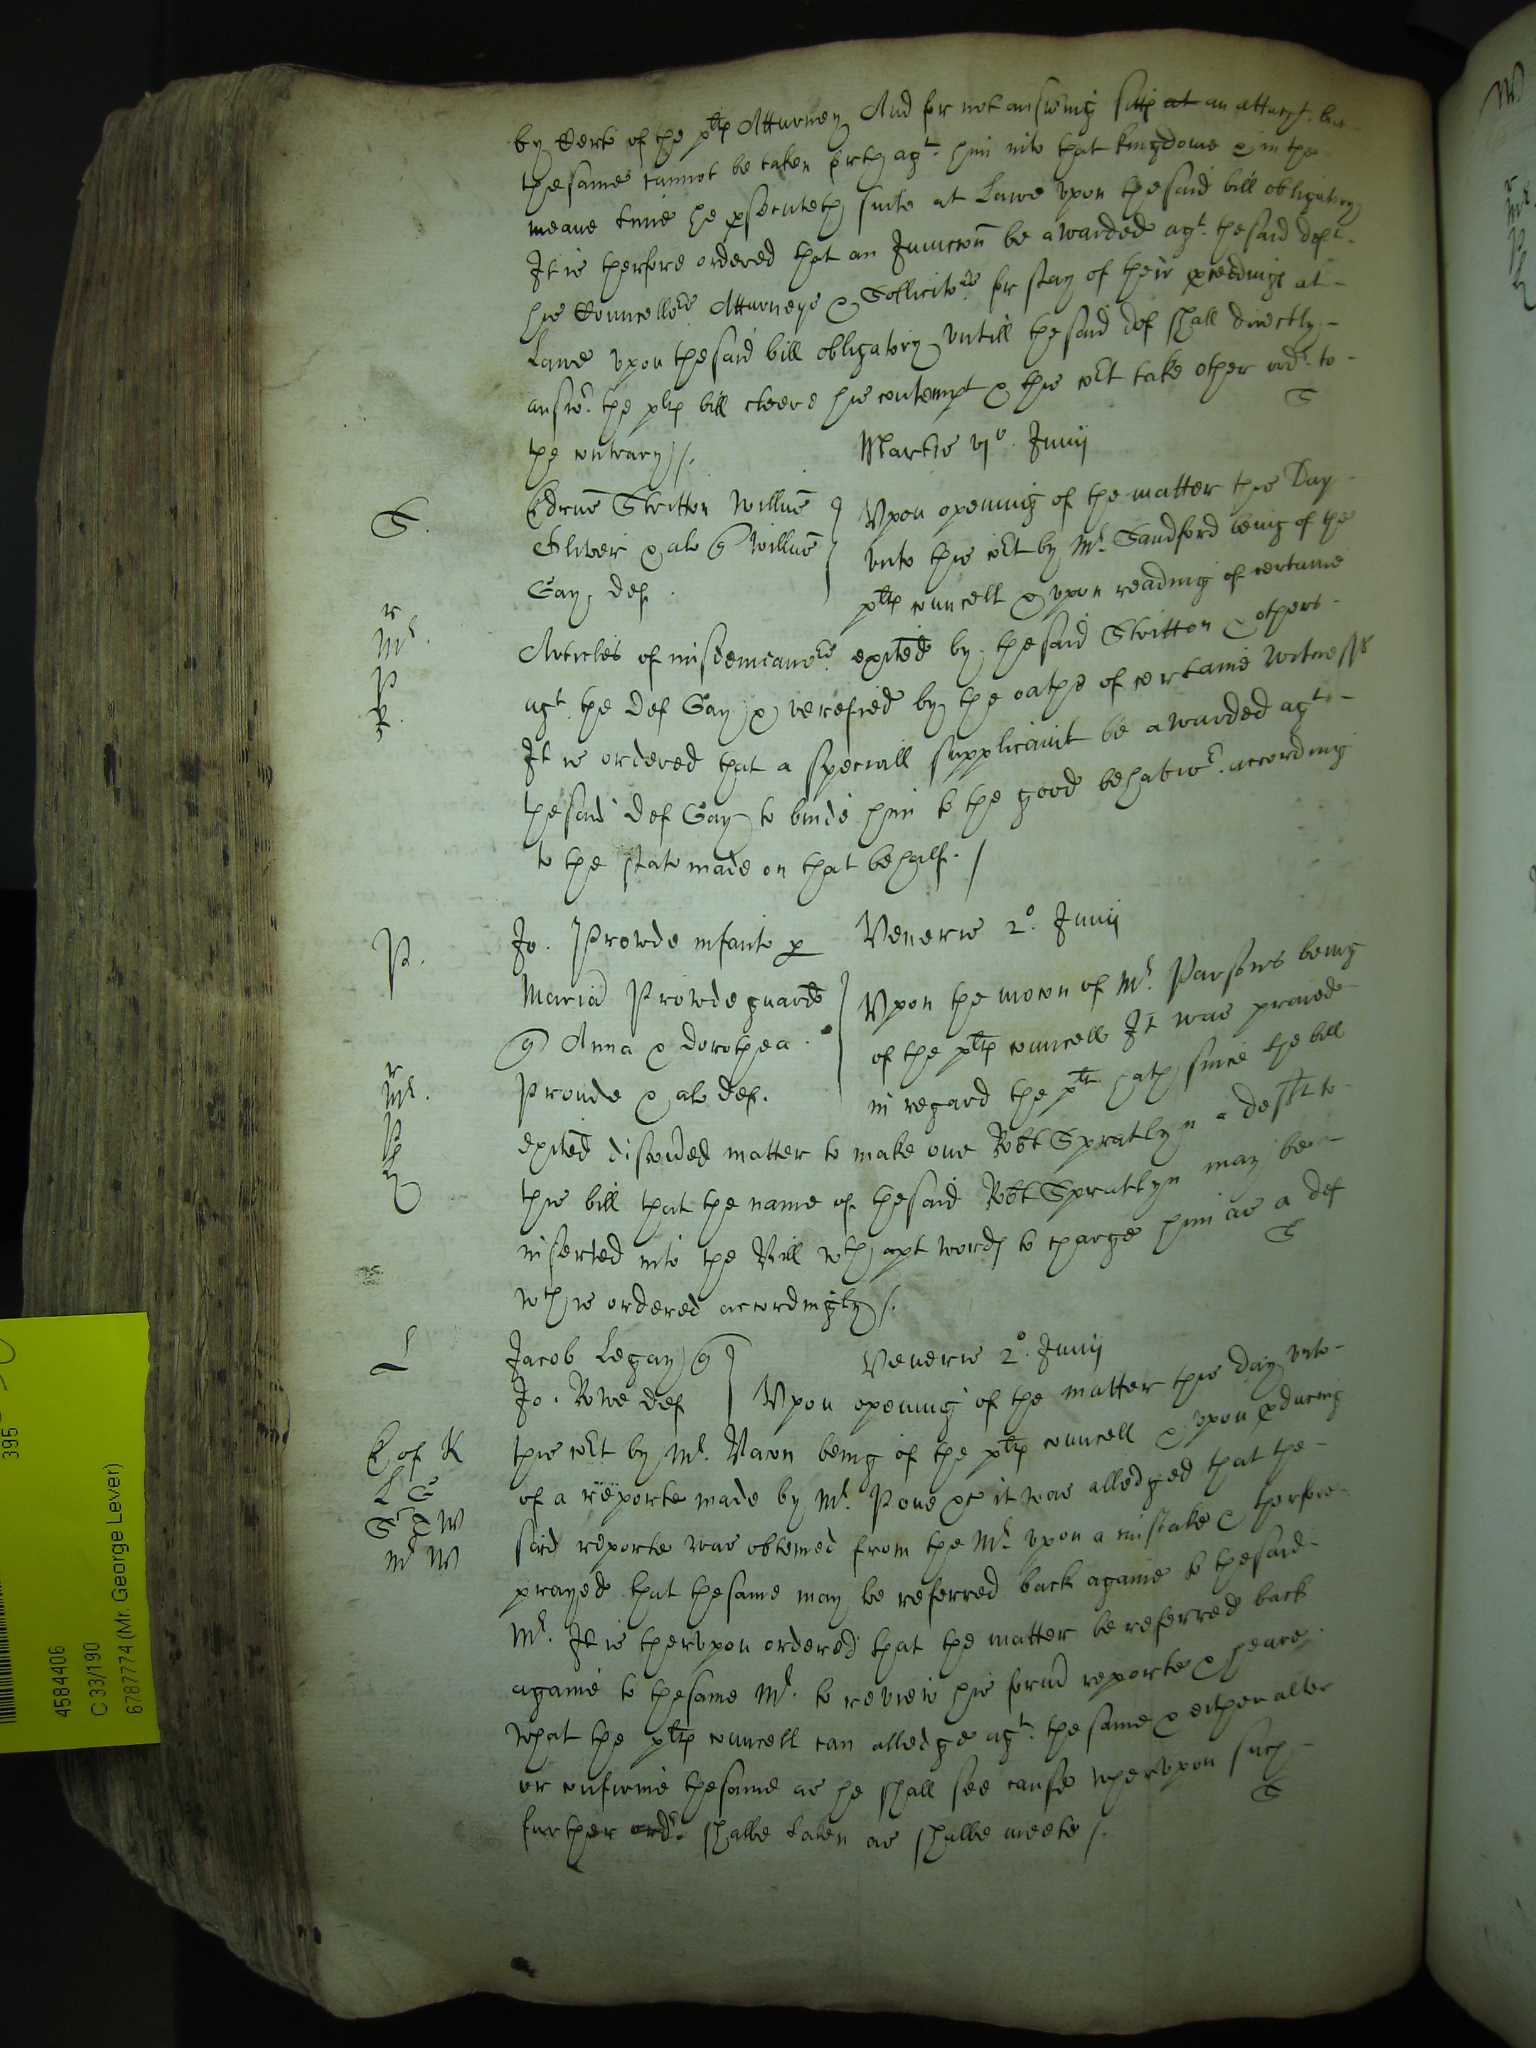 by Certe of the pltes Attorney And for not answering sitts at an attachmt. but
the same cannot be taken forth agt. him into that kingdome & in the
meane time he psecuteth suite at Lawe vpon the said bill obligatory
It is therfore ordered that an Iniuncon be awarded agt. the said deft.
his Councellrs. Attorneys & Sollicitors for stay of their pceedings at
Lawe vpon the said bill obligatory vntill the said def shall directly
answr. the pltes bill cleere his contempt & this cort take other ordr. to
the contrary /.
S
Martis vjo. Junij
S.
Edrus Stritton Willus
Oliver & als Q Willus
Gay, def.
Vpon opening of the matter this Day
vnto this cort by Mr. Sandford being of the
pltes councell & vpon reading of certaine
r
Mr.
P
Articles of misdemeanors. exited by the said Stritton & others
agt. the def Gay & verefied by the oathes of certaine witnesses
It is ordered that a speciall supplicavit be awarded agt.
the said def Gay to binde him to the good behaviour. according
to the state made on that behalf. /
P.
Jo. Prowde infante p
Maria Prowde guard
Q Anna & Dorothea
Proude & als def.
Veneris 2o. Junij
Vpon the mocon of Mr. Parsons being
of the pltes councell It was praied
in regard the plt hath since the bill
r
Mr.
P
exited discoued matter to make one Robt Spratlyn a deft to
this bill that the name of the said Robt Spratlyn may be
inserted into the Bill wth apt words to charge him as a def
wch is ordered accordingly /.
S
L
Jacob Legay Q
Jo. Rowe def
Veneris 2o. Junij
Vpon opening of the matter this day vnto
E of K
L G
Sr E W
Mr W
this cort by Mr. Vacon being of the pltes councell & vpon pducing
of a reporte made by Mr. Pone &c it was alledged that the
said reporte was obteined from the Mr. vpon a mistake & therfore
prayed that the same may be referred back againe to the said
Mr. It is thervpon ordered that the matter be referred back
againe to the same Mr. to review his formr reporte & heare
what the pltes councell can alledge agt. the same & either alter
or confirme the same as he shall see cause whervpon such
further ordr. shalbe taken as shalbe meete /.
S
395
4584406
C 33/190
6787774 (Mr. George Lever)